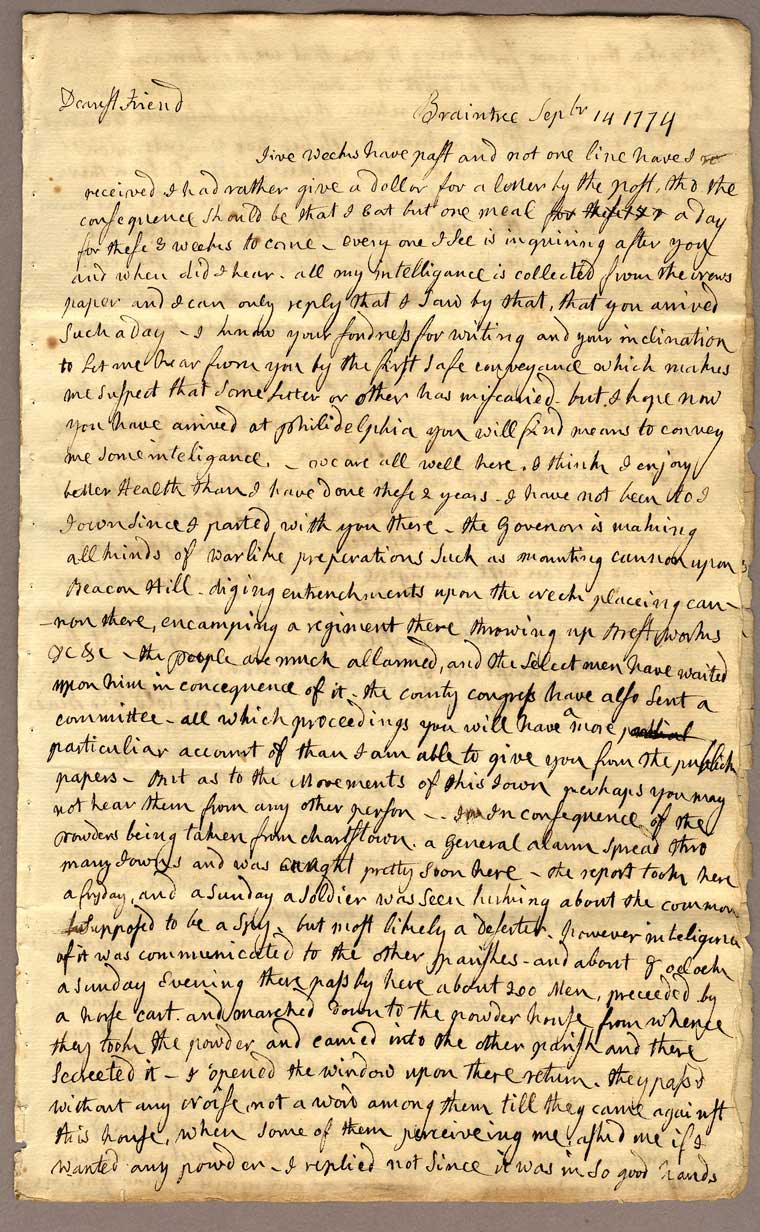 Dearest Friend
Braintree Sepbr 14 1774
five weeks have past and not one line have I re
received I had rather give a dollor for a letter by the post, tho the
consequence should be that I Eat but one meal for these a day
for these 3 weeks to come – every one I see is inquiring after you
and when did I hear – all my intelligance is collected from the news
paper and I can only reply that I saw by that, that you arrived
such a day – I know your fondness for writing and your inclination
to let me hear from you by the first safe conveyance which makes
me suspect that some letter or other has miscaried – but I hope now
you have arrived at philidelphia you will find means to convey
me some inteligance. – we are all well here. I think I enjoy
better Health than I have done these 2 years – I have not been to
Town since I parted with you there – the Govenor is making
all kinds of warlike preperations such as mounting cannon upon
Beacon Hill – diging entrenchments upon the neck placeing can-
-non there, encamping a regiment there throwing up Brest works
&c &c – the people are much allarmed, and the Selectmen have waited
upon him in concequence of it – the county congress have also sent a
committee – all which proceedings you will have a more
particuliar account of than I am able to give you from the publick
papers – But as to the Movements of this Town perhaps you may
not hear them from any other person – In In consequence of the
powders being taken from charlstown. a general alarm spread thro
many Towns and was caught pretty soon here – the report took here
a fryday, and a sunday a soldier was seen lurking about the common
Supposed to be a Spy, but most likely a deserter. however inteligence
of it was communicated to the other parishes – and about 8 oclock
a sunday Evening there pass by here about 200 Men, preceeded by
a horse cart. and marched down to the powder house from whence
they took the powder and carried into the other parish and there
secreeted it – I opened the window upon there return. they pass'd
without any Noise, not a word among them till they came against
this house, when some of them perceiveing me, askd me if I
wanted any powder – I replied not since it was in so good hands